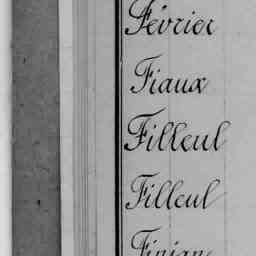 Février
Fiaux
Filleul
Filleul